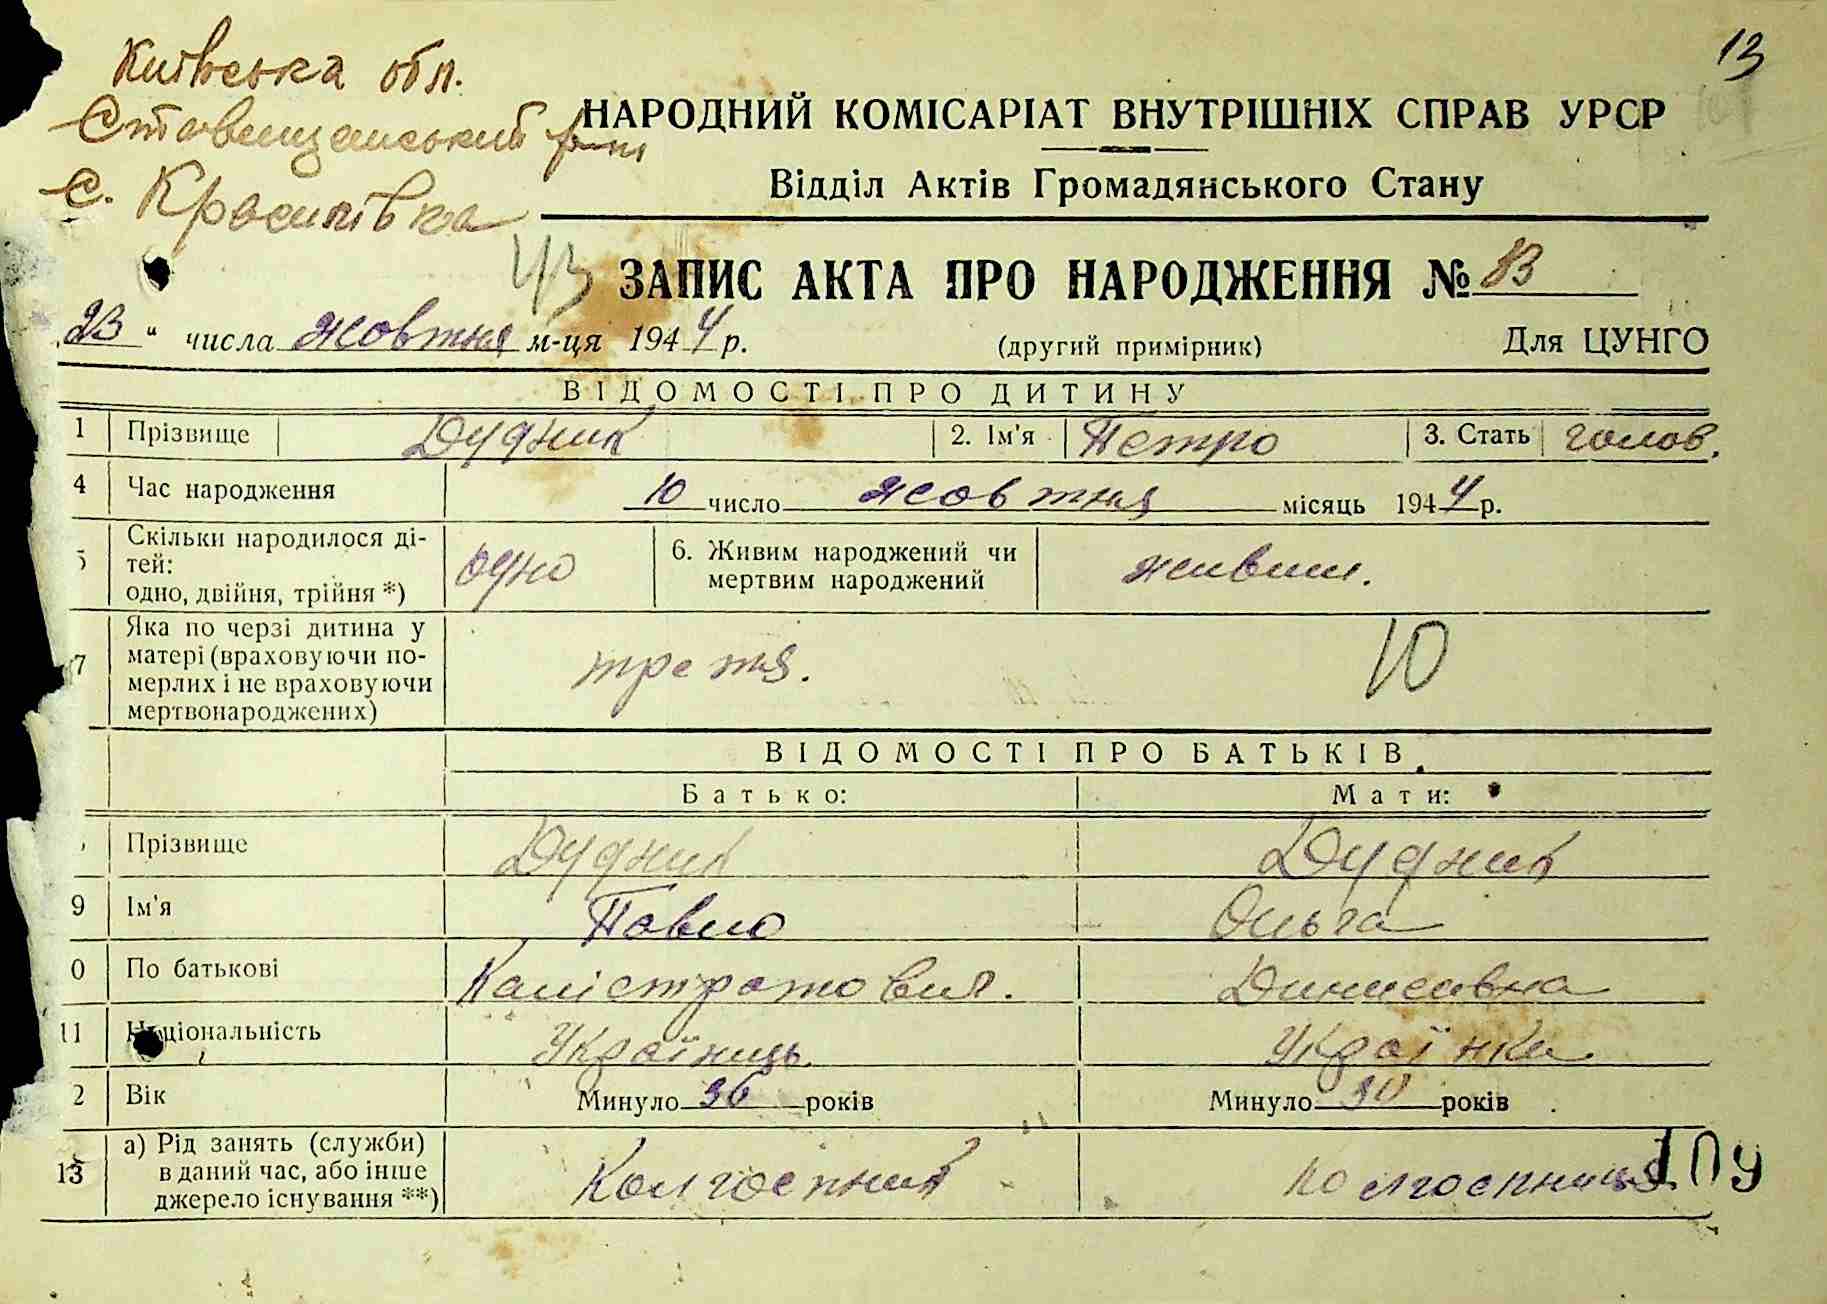 13
Київська обл.
Ставищанський р-н
с. Красилівка
НАРОДНИЙ КОМІСАРІАТ ВНУТРІШНІХ СПРАВ УРСР
Відділ Актів Громадянського Стану
43
ЗАПИС АКТА ПРО НАРОДЖЕННЯ № 13
23 " числа жовтня м-ця 1944 р. (другий примірник) Для ЦУНГО
ВІДОМОСТІ ПРО ДИТИНУ
1 Прізвище Дудник 2. Ім'я Петро 3. Стать голов.
4 Час народження 10 число жовтня місяць 1944 р.
5 Скільки народилося ді-
тей:
одно, двійня, трійня *) одно 6. Живим народжений чи
мертвим народжений живим.
7 Яка по черзі дитина у
матері (враховуючи по-
мерлих і не враховуючи
мертвонароджених) третя. 10
ВІДОМОСТІ ПРО БАТЬКІВ
Батько: Мати:
Прізвище Дудник Дудник
9 Ім'я Павло Ольга
0 По батькові Калістратович. Динисивна
11 Національність Україниць Українка
2 Вік Минуло 36 років Минуло 30 років
13 а) Рід занять (служби)
в даний час, або інше
джерело існування **) Колгоспник колгоспниця